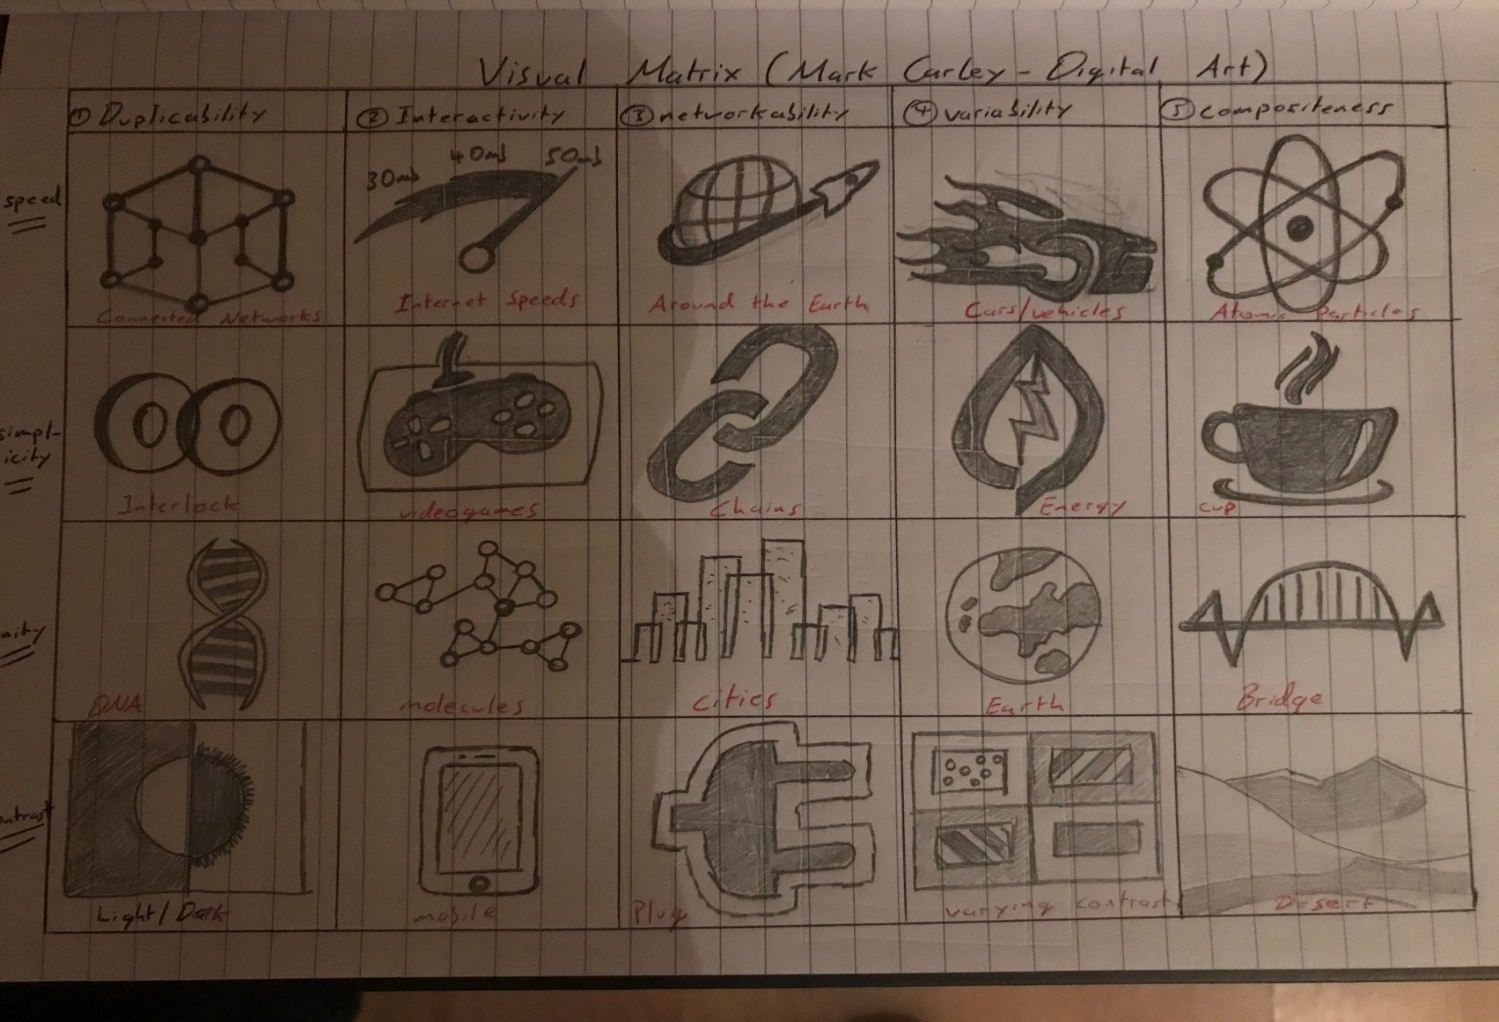 Visual Matrix (Mark Curley - Digital Art)
① Duplicability ② Interactivity ③ networkability ④ variability ⑤ compositeness
speed
30mb 40mb 50mb
Connected Networks Internet Speeds Around the Earth Cars/vehicles Atomic Particles
simpl-
icity
Interlock videogames Chains Energy cup
DNA molecules Cities Earth Bridge
Light/Dark mobile Plug varying contrast Desert